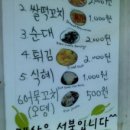 2 쌀떡꼬치 2,000원
3 순대 2,000원
4 튀김 2,000원
5 식혜 1,000원
6 어묵꼬치 500원
(오뎅)
선불입니다